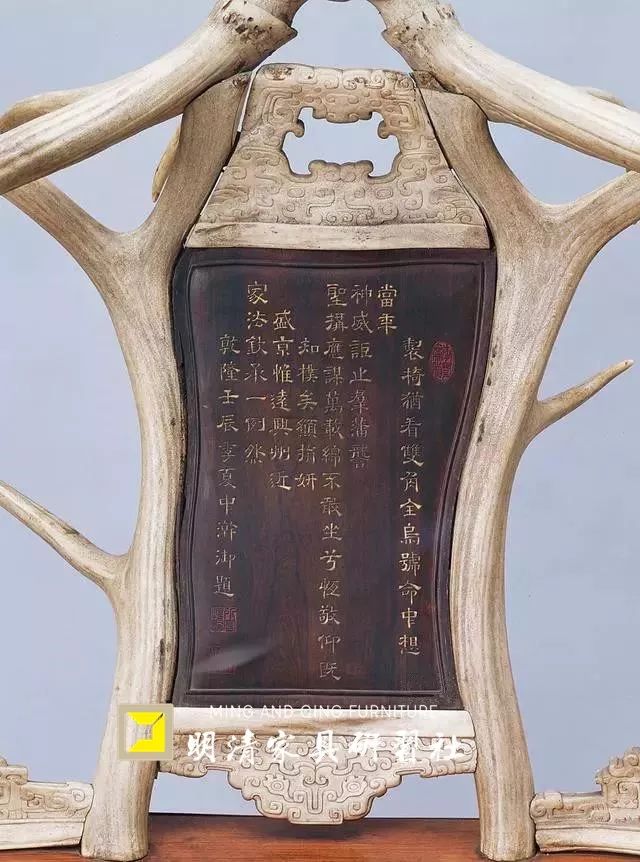 製椅猶看雙角全烏號命中想
當年
神威詎止羣藩讋
聖構應謀萬載綿不敢坐兮恆敬仰既
知樸矣願捐妍
盛京惟遠興州近
家法欽承一例然
乾隆壬辰季夏中澣御題
MING AND QING FURNITURE
明清家具研習社